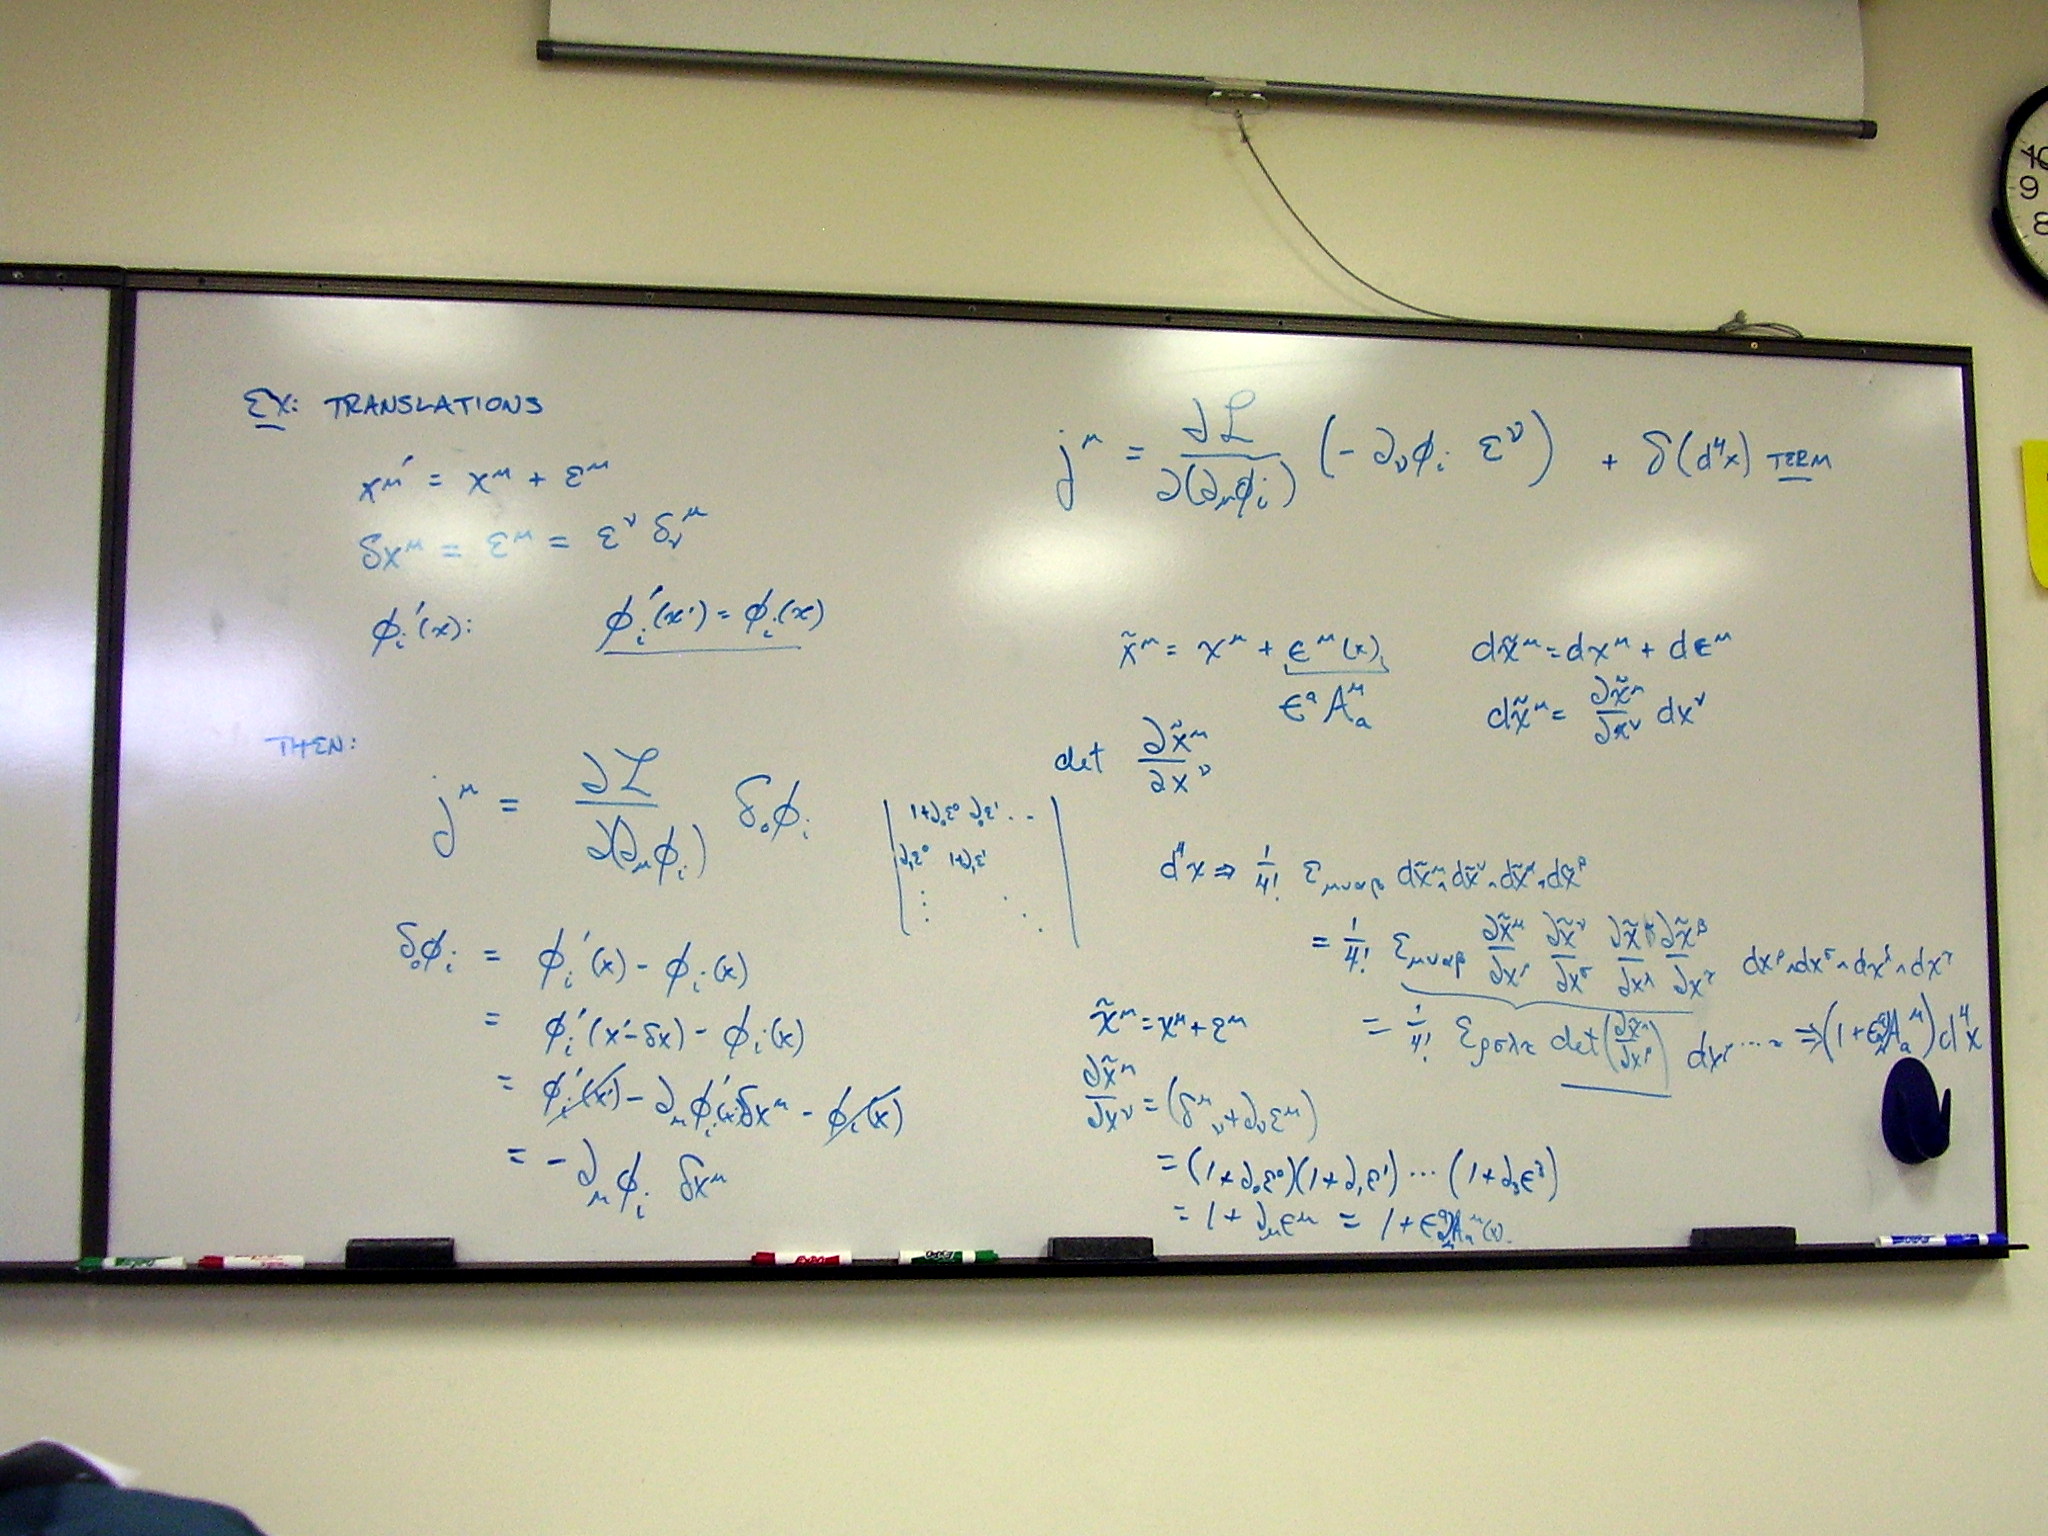 EX: TRANSLATIONS
x^μ' = x^μ + ε^μ
δx^μ = ε^μ = ε^ν δ_ν^μ
φ_i'(x): φ_i'(x') = φ_i(x)
THEN:
j^μ = ∂ℒ/∂(∂_μφ_i) δ_0φ_i
δ_0φ_i = φ_i'(x) - φ_i(x)
= φ_i'(x'-δx) - φ_i(x)
= φ_i'(x') - ∂_μφ_i'(x')δx^μ - φ_i(x)
= -∂_μφ_i δx^μ
| 1+∂_0ε^0 ∂_0ε^1 ...
∂_1ε^0 1+∂_1ε^1
⋮ ⋱ |
j^μ = ∂ℒ/∂(∂_μφ_i) (-∂_νφ_i ε^ν) + δ(d^4x) TERM
x̃^μ = x^μ + ε^μ(x) dx̃^μ = dx^μ + dε^μ
ε^a A_a^μ dx̃^μ = ∂x̃^μ/∂x^ν dx^ν
det ∂x̃^μ/∂x^ν
d^4x ⇒ 1/4! ε_μναβ dx̃^μ∧dx̃^ν∧dx̃^α∧dx̃^β
= 1/4! ε_μναβ ∂x̃^μ/∂x^ρ ∂x̃^ν/∂x^σ ∂x̃^α/∂x^λ ∂x̃^β/∂x^τ dx^ρ∧dx^σ∧dx^λ∧dx^τ
= 1/4! ε_ρσλτ det(∂x̃^μ/∂x^ρ) dx^ρ... ⇒ (1+ε^a∂_μA_a^μ)d^4x
x̃^μ = x^μ + ε^μ
∂x̃^μ/∂x^ν = (δ^μ_ν + ∂_νε^μ)
= (1+∂_0ε^0)(1+∂_1ε^1) ... (1+∂_3ε^3)
= 1 + ∂_με^μ = 1 + ε^a∂_μA_a^μ(x).
10
9
8
EXPO